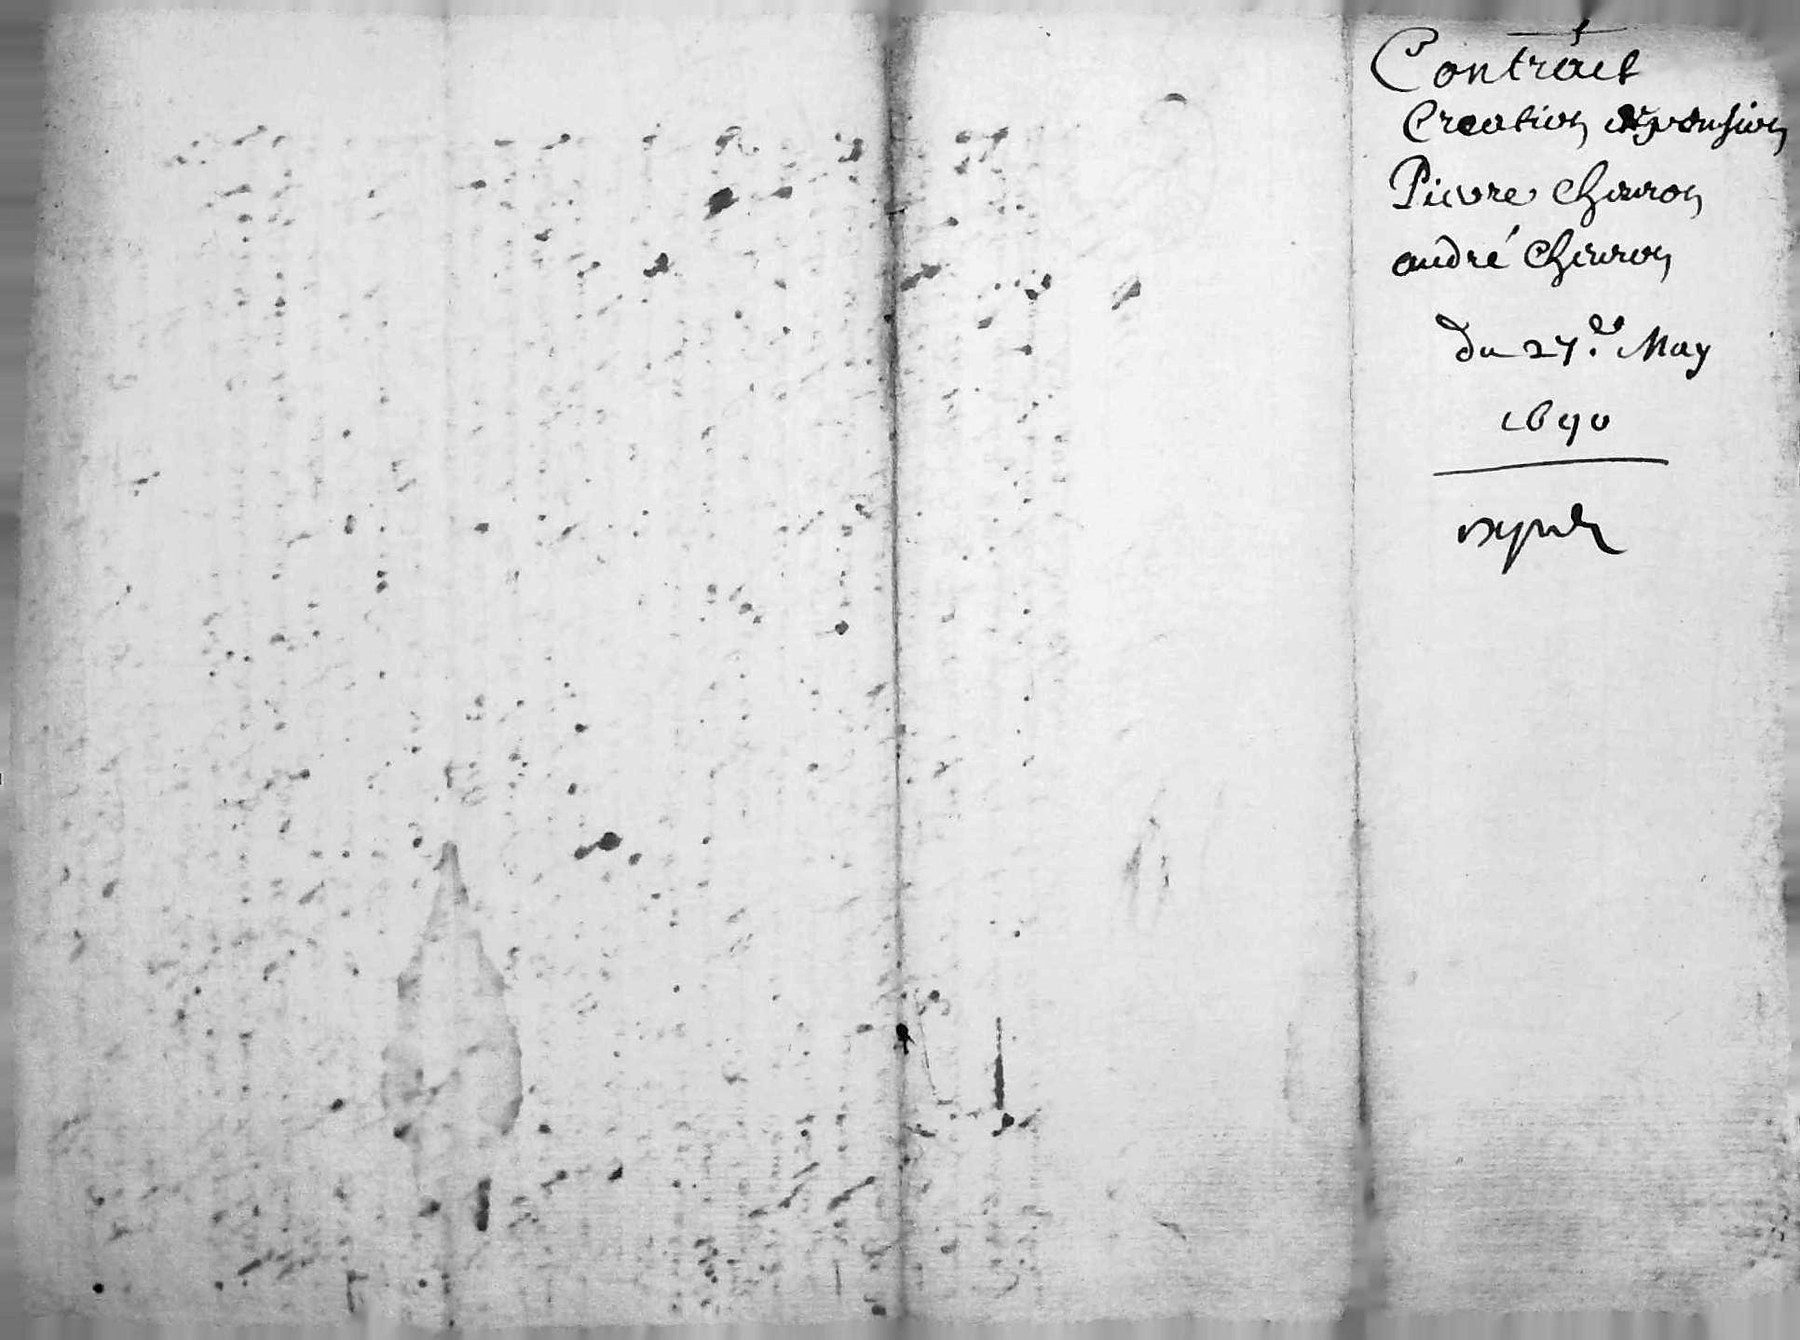 Contract
Creation de pension
Pierre Charron
andré Charron
du 27.e May
1690